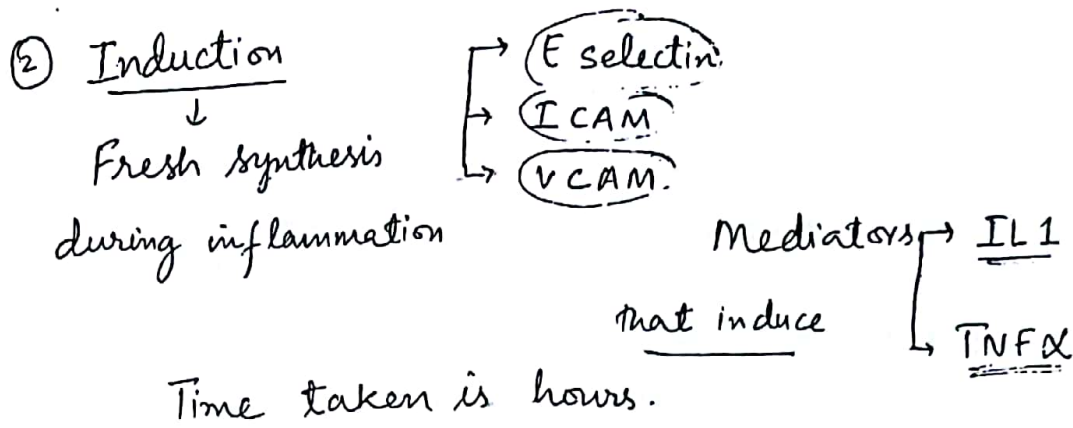 ② Induction
↓
Fresh synthesis
during inflammation
→ E selectin.
→ ICAM
→ VCAM.
Mediators → IL1
that induce → TNFα
Time taken is hours.